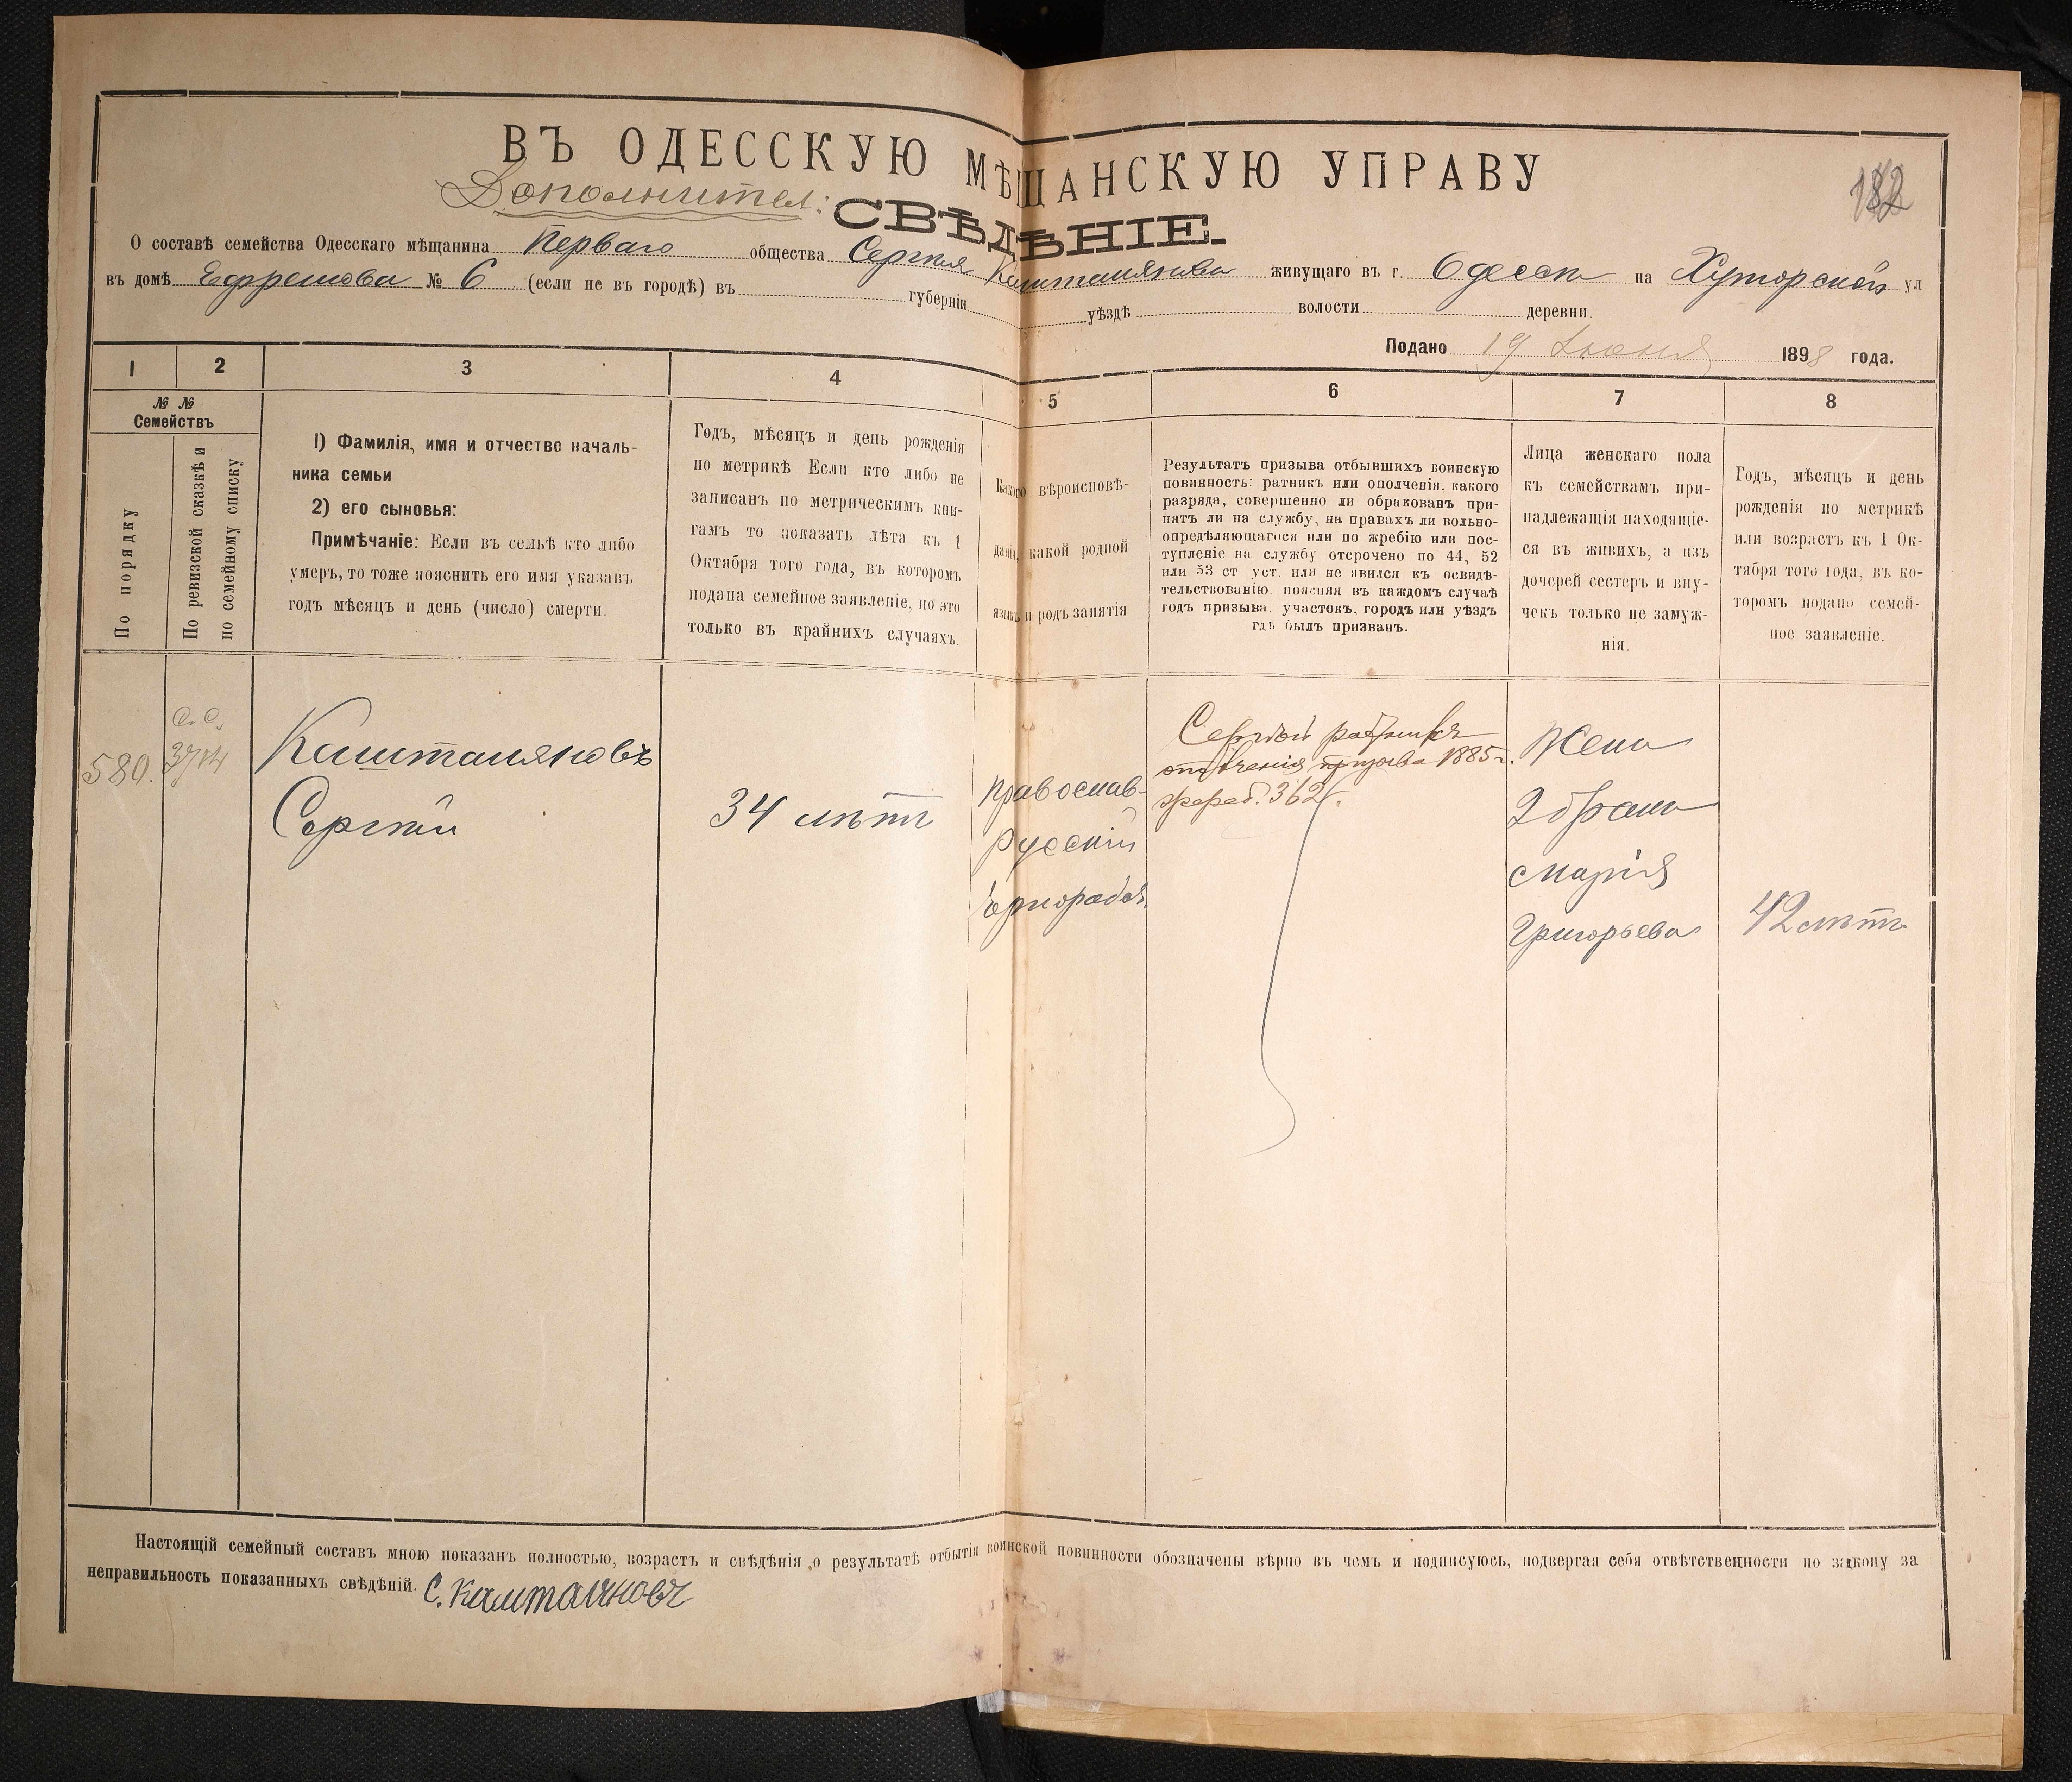 ВЪ ОДЕССКУЮ МѢЩАНСКУЮ УПРАВУ
182
Дополнител:
СВѢДѢНІЕ.
О составѣ семейства Одесскаго мѣщанина Перваго общества Сергея Каштанянова живущаго въ г. Одессѣ на Хуторской ул
въ домѣ Ефремова № 6 (если не въ городѣ) въ губерніи уѣздѣ волости деревни.
Подано 19 Іюня 1898 года.
1 2 3 4 5 6 7 8
№ № Семействъ
По порядку
По ревизской сказкѣ и
по семейному списку
1) Фамилія, имя и отчество началь-
ника семьи
2) его сыновья:
Примѣчаніе: Если въ семьѣ кто либо
умеръ, то тоже пояснить его имя указавъ
годъ мѣсяцъ и день (число) смерти.
Годъ, мѣсяцъ и день рожденія
по метрикѣ Если кто либо не
записанъ по метрическимъ кни-
гамъ то показать лѣта къ 1
Октября того года, въ которомъ
подана семейное заявленіе, но это
только въ крайнихъ случаяхъ
Какого вѣроисповѣ-
данія, какой родной
языкъ и родъ занятія
Результатъ призыва отбывшихъ воинскую
повинность: ратникъ или ополченія, какого
разряда, совершенно ли обракованъ при-
нятъ ли на службу, на правахъ ли вольно-
опредѣляющагося или по жребію или пос-
тупленіе на службу отсрочено по 44, 52
или 53 ст уст. или не явился къ освидѣ-
тельствованію. поясняя въ каждомъ случаѣ
годъ призыва. участокъ, городъ или уѣздъ
гдѣ былъ призванъ.
Лица женскаго пола
къ семействамъ при-
надлежащія находящіе-
ся въ живихъ, а изъ
дочерей сестеръ и вну-
чекъ только не замуж-
нія.
Годъ, мѣсяцъ и день
рожденія по метрикѣ
или возрастъ къ 1 Ок-
тября того года, въ ко-
торомъ подано семей-
ное заявленіе.
580.
С. С.
3714
Каштаняновъ
Сергѣй
34 лѣтъ
Православ-
Русскій
Чернорабоч.
Сергѣй ратникъ
ополченія призыва 1885 г.
жереб. 362.
Жена
2 брака
Марія
Григорьева
42 лѣтъ
Настоящій семейный составъ мною показанъ полностью, возрастъ и свѣдѣнія о результатѣ отбытія воинской повинности обозначены вѣрно въ чемъ и подписуюсь, подвергая себя отвѣтственности по закону за
неправильность показанныхъ свѣдѣній. С. Каштаяновъ